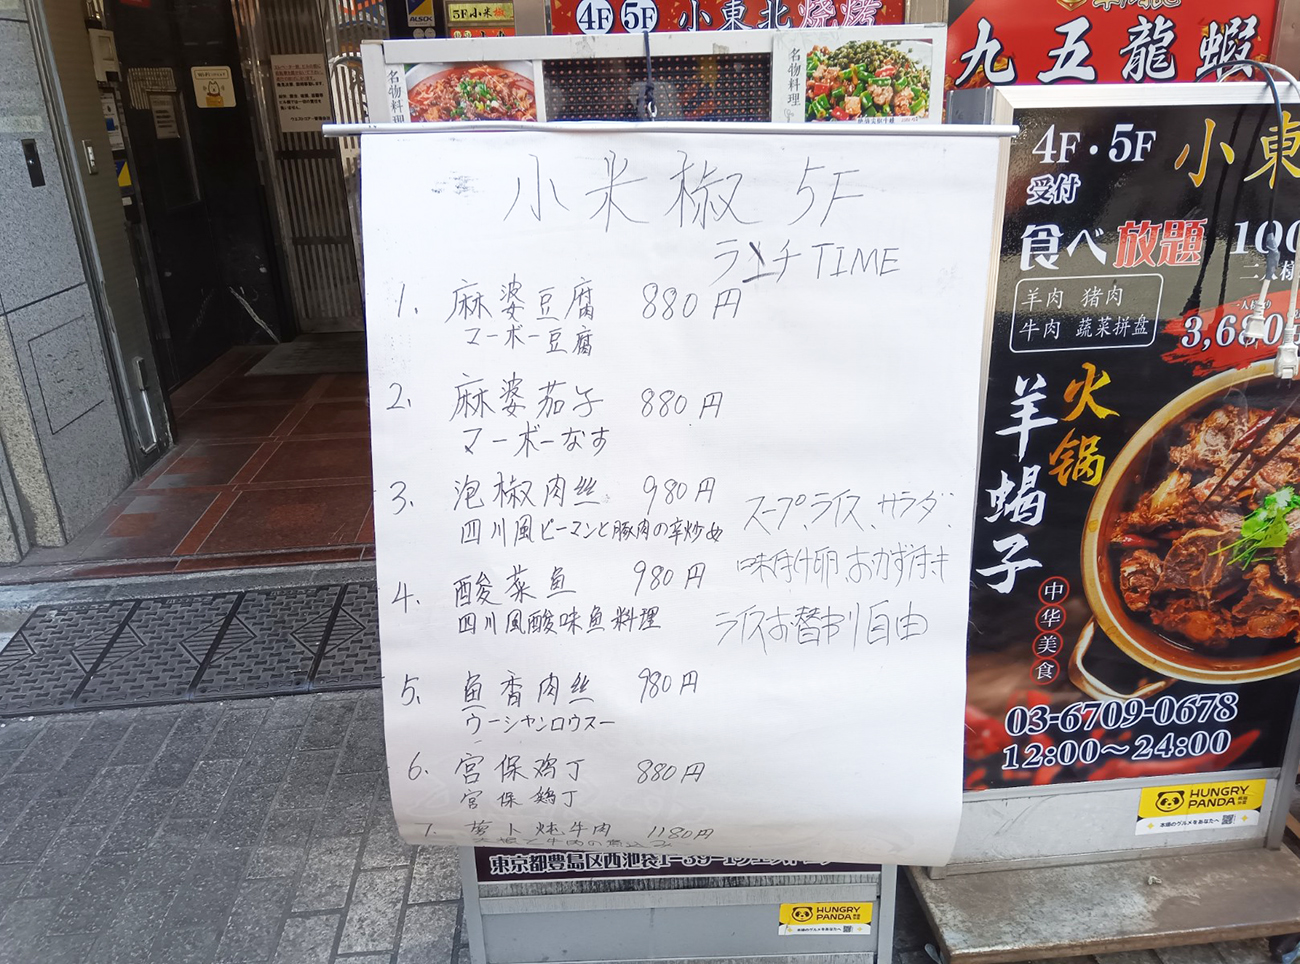 ALSOK
5F小米椒
4F 5F 小東北焼烤
九五龍蝦
名物料理
名物料理
小米椒 5F
ランチTIME
1. 麻婆豆腐 880円
マーボー豆腐
2. 麻婆茄子 880円
マーボーなす
3. 泡椒肉丝 980円
四川風ピーマンと豚肉の辛炒め
4. 酸菜鱼 980円
四川風酸味魚料理
5. 鱼香肉丝 980円
ウーシャンロウスー
6. 宫保鸡丁 880円
宮保鶏丁
7. 萝卜炖牛肉 1180円
スープ、ライス、サラダ、
味付け卵、おかず付き
ライスお替わり自由
東京都豊島区西池袋1-39-1
HUNGRY PANDA
本場のグルメをあなたへ
4F・5F
受付
小東
食べ放題
羊肉 猪肉
牛肉 蔬菜拼盘
3,680
火锅
羊蝎子
中华美食
03-6709-0678
12:00〜24:00
HUNGRY PANDA
本場のグルメをあなたへ